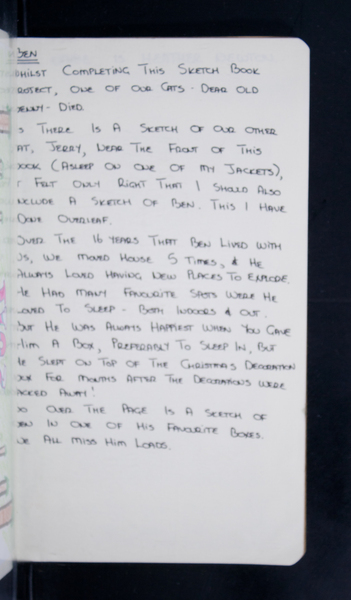 BEN
WHILST COMPLETING THIS SKETCH BOOK
PROJECT, ONE OF OUR CATS - DEAR OLD
BENNY - DIED.
AS THERE IS A SKETCH OF OUR OTHER
CAT, JERRY, NEAR THE FRONT OF THIS
BOOK (ASLEEP ON ONE OF MY JACKETS),
IT FELT ONLY RIGHT THAT I SHOULD ALSO
INCLUDE A SKETCH OF BEN. THIS I HAVE
DONE OVERLEAF.
OVER THE 16 YEARS THAT BEN LIVED WITH
US, WE MOVED HOUSE 5 TIMES, & HE
ALWAYS LOVED HAVING NEW PLACES TO EXPLORE.
HE HAD MANY FAVOURITE SPOTS WERE HE
LOVED TO SLEEP - BOTH INDOORS & OUT.
BUT HE WAS ALWAYS HAPPIEST WHEN YOU GAVE
HIM A BOX, PREFERABLY TO SLEEP IN, BUT
HE SLEPT ON TOP OF THE CHRISTMAS DECORATION
BOX FOR MONTHS AFTER THE DECORATIONS WERE
PACKED AWAY!
SO OVER THE PAGE IS A SKETCH OF
BEN IN ONE OF HIS FAVOURITE BOXES.
WE ALL MISS HIM LOADS.